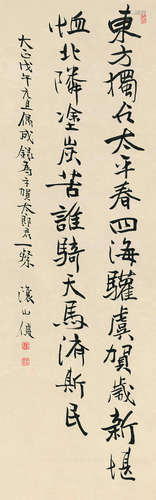 東方獨占太平春四海驩虞賀歲新堪
恤北隣塗炭苦誰騎天馬濟斯民
大正戊午元旦偶成錄為賀太郎君一粲
山